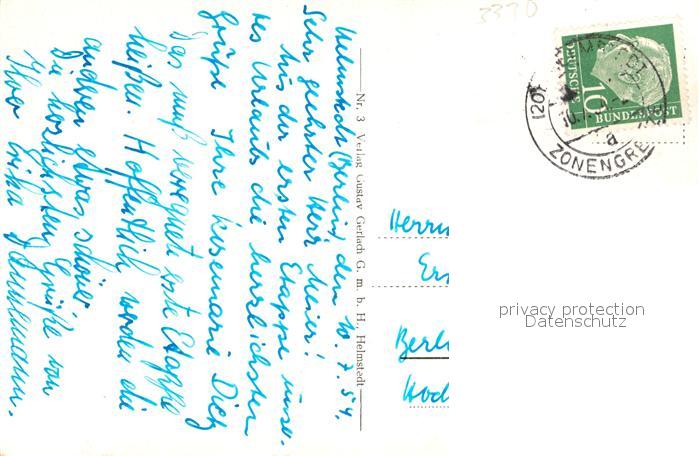 Helmstedt (Berlin) den 10.7.54.
Sehr geehrter Herr Meier!
Aus der ersten Etappe unse-
res Urlaubs die herzlichsten
Grüße Ihre Rosemarie Dietz
Das muß verregnete erste Etappe
heißen. Hoffentlich werden die
anderen etwas schöner.
Die herzlichsten Grüße von
Ihrer Erika
Nr. 3 Verlag Gustav Gerlach G. m. b. H., Helmstedt
3370
DEUTSCHE
BUNDESPOST
10
(20
a
ZONENGRE
Herrn
Berl
privacy protection
Datenschutz